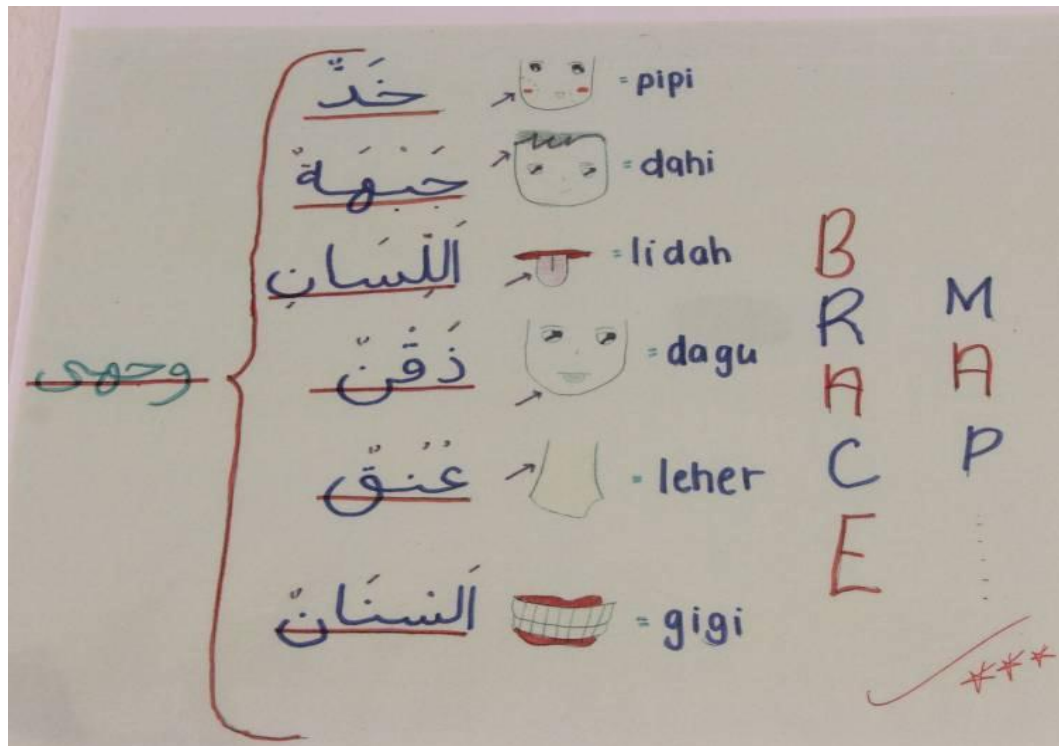 وجهى
خَدٌّ = pipi
جَبْهَةٌ = dahi
اَللِّسَانِ = lidah
ذَقَنٌ = dagu
عُنُقٌ = leher
اَلسنَانٌ = gigi
BRACE
MAP